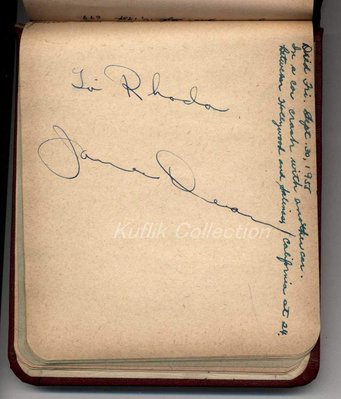 To Rhoda
James Dean
Kuflik Collection
Died Fri. Sept. 30, 1955
In a car crash with another car.
Between Hollywood and Salinas, California at 24.